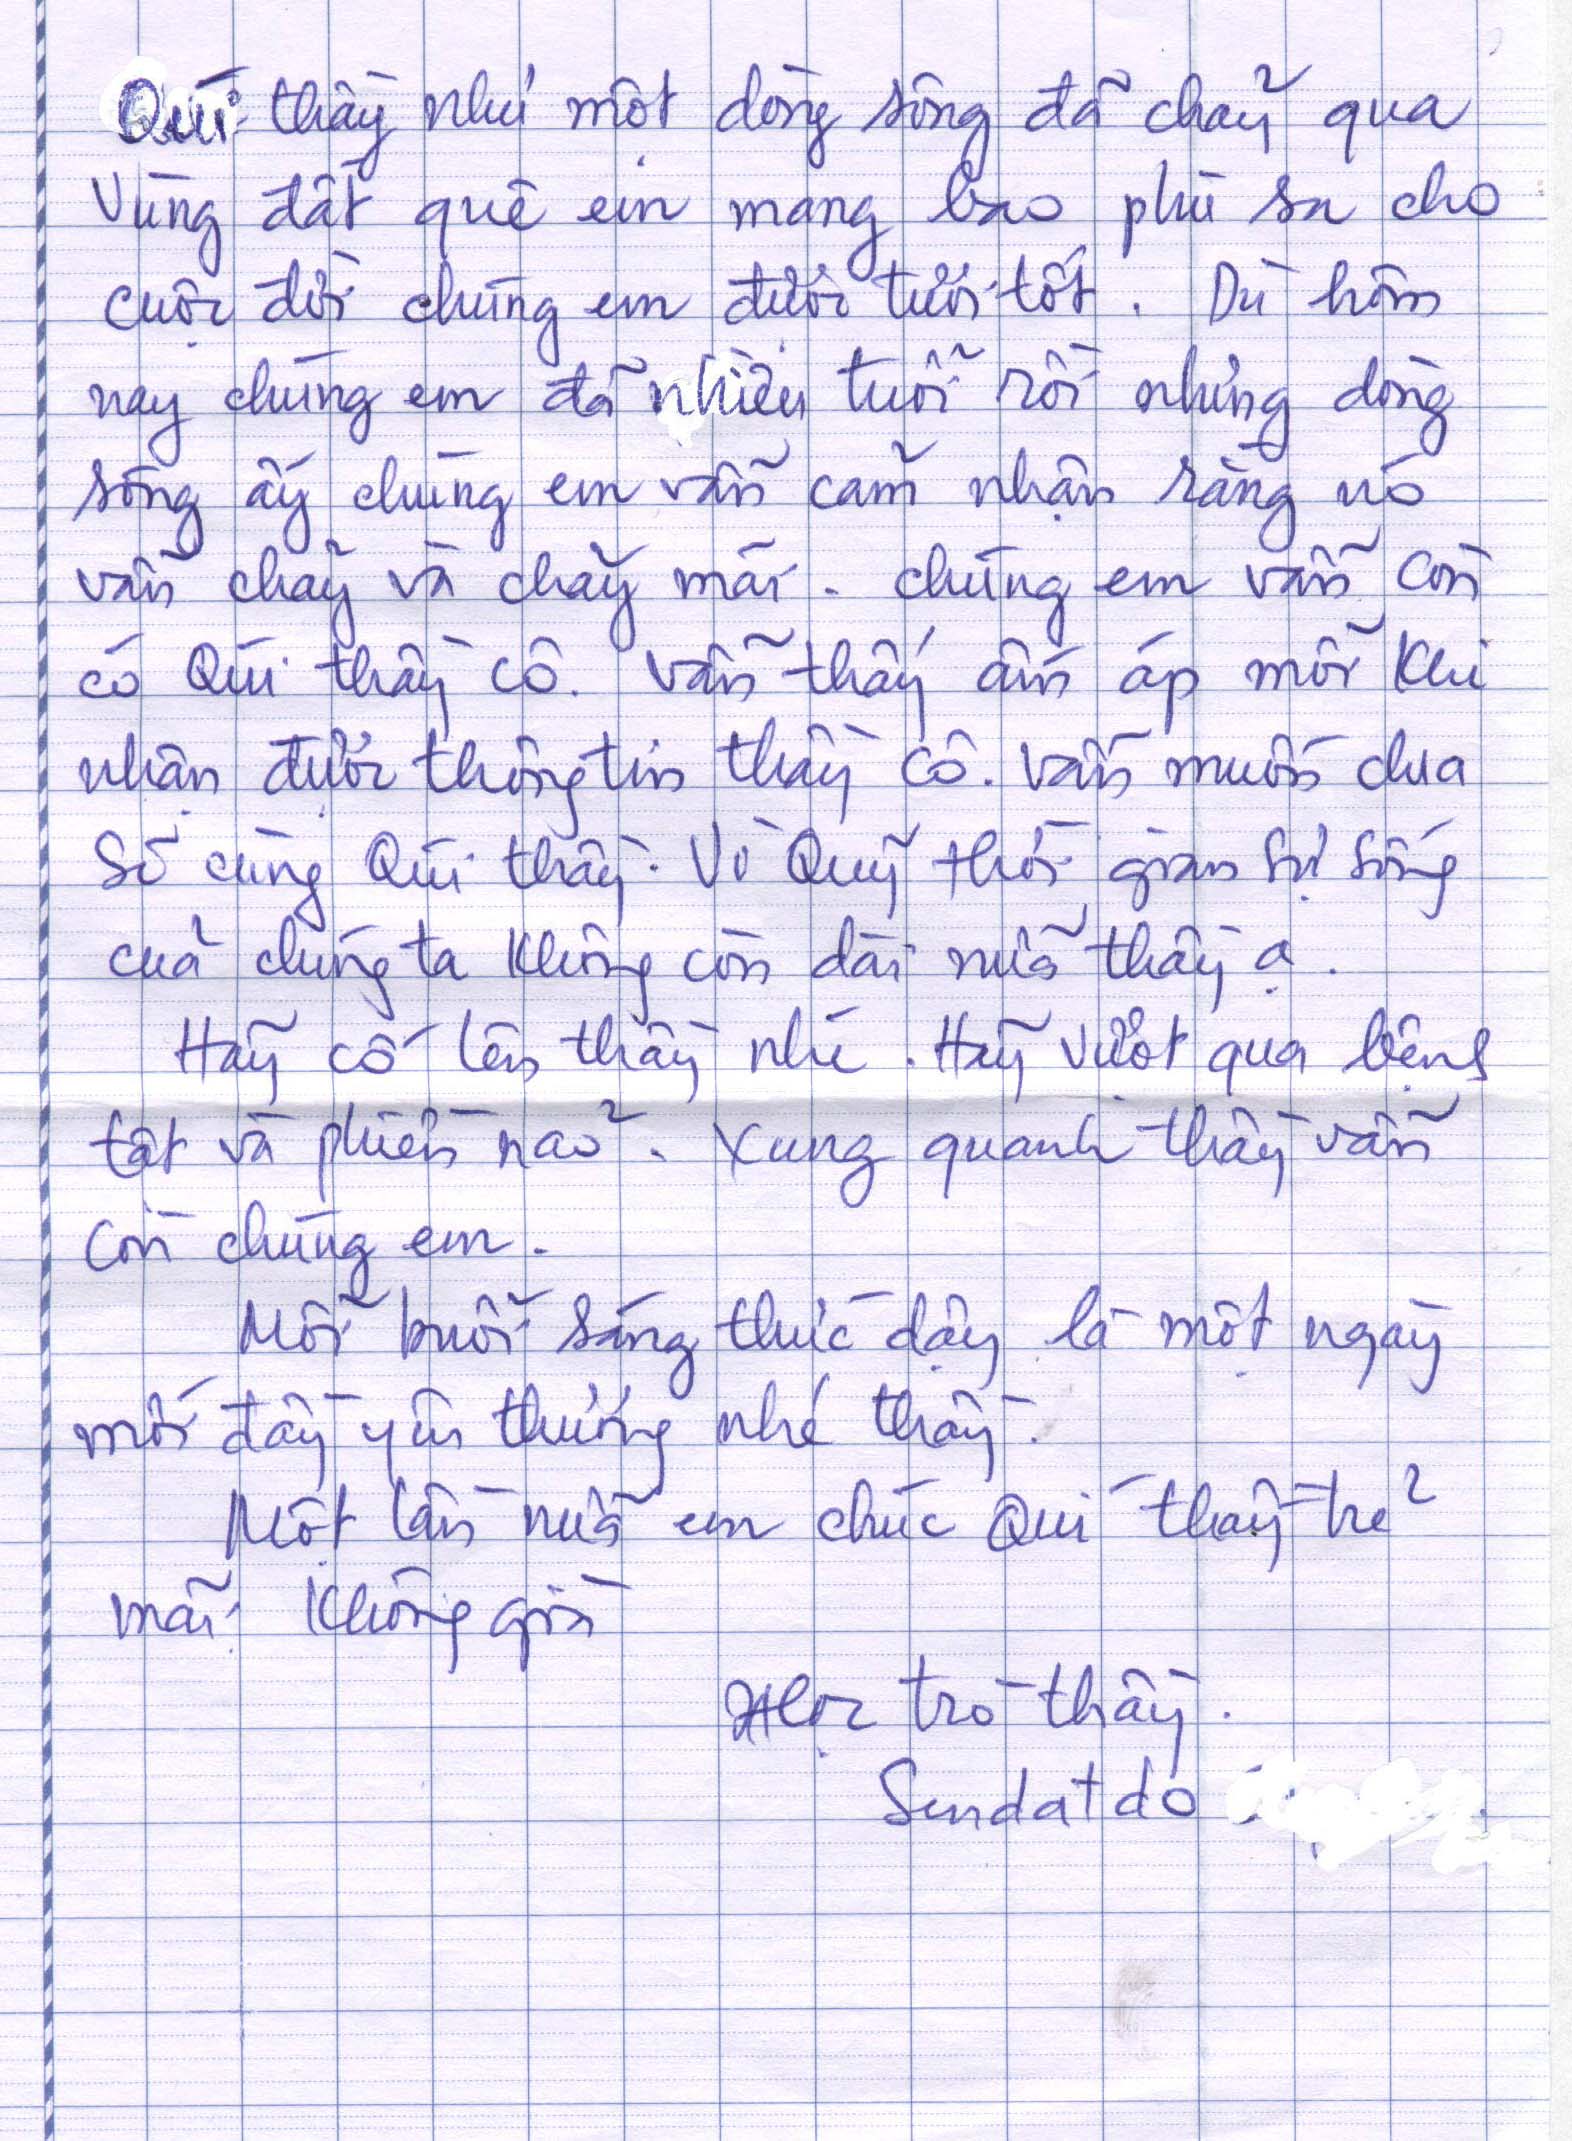 Quí thầy như một dòng sông đã chảy qua
Vùng đất quê em mang bao phù sa cho
cuộc đời chúng em được tươi tốt. Dù hôm
nay chúng em đã nhiều tuổi rồi nhưng dòng
sông ấy chúng em vẫn cảm nhận rằng nó
vẫn chảy và chảy mãi. chúng em vẫn còn
có Quí thầy cô. vẫn thấy ấm áp mỗi khi
nhận được thông tin thầy cô. vẫn muốn chia
sẻ cùng Quí thầy. Vì Quỹ thời gian sự sống
của chúng ta không còn dài nữa thầy ạ.
Hãy cố lên thầy nhé. Hãy vượt qua bệnh
tật và phiền não. Xung quanh thầy vẫn
còn chúng em.
Mỗi buổi sáng thức dậy là một ngày
mới đầy yêu thương nhé thầy.
Một lần nữa em chúc Quí thầy trẻ
mãi không già
Học trò thầy.
Sendatdo